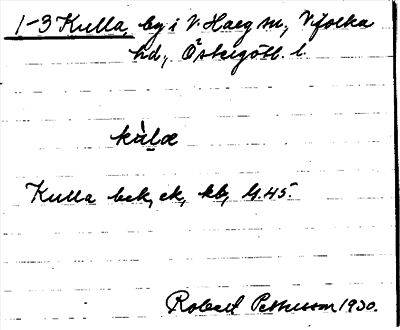 1-3 Kulla by i V. Harg sn, Vifolka
hd, Östergötl. l.
kùlæ
Kulla bek, ek, kb, G.45.
Robert Pettersson 1930.